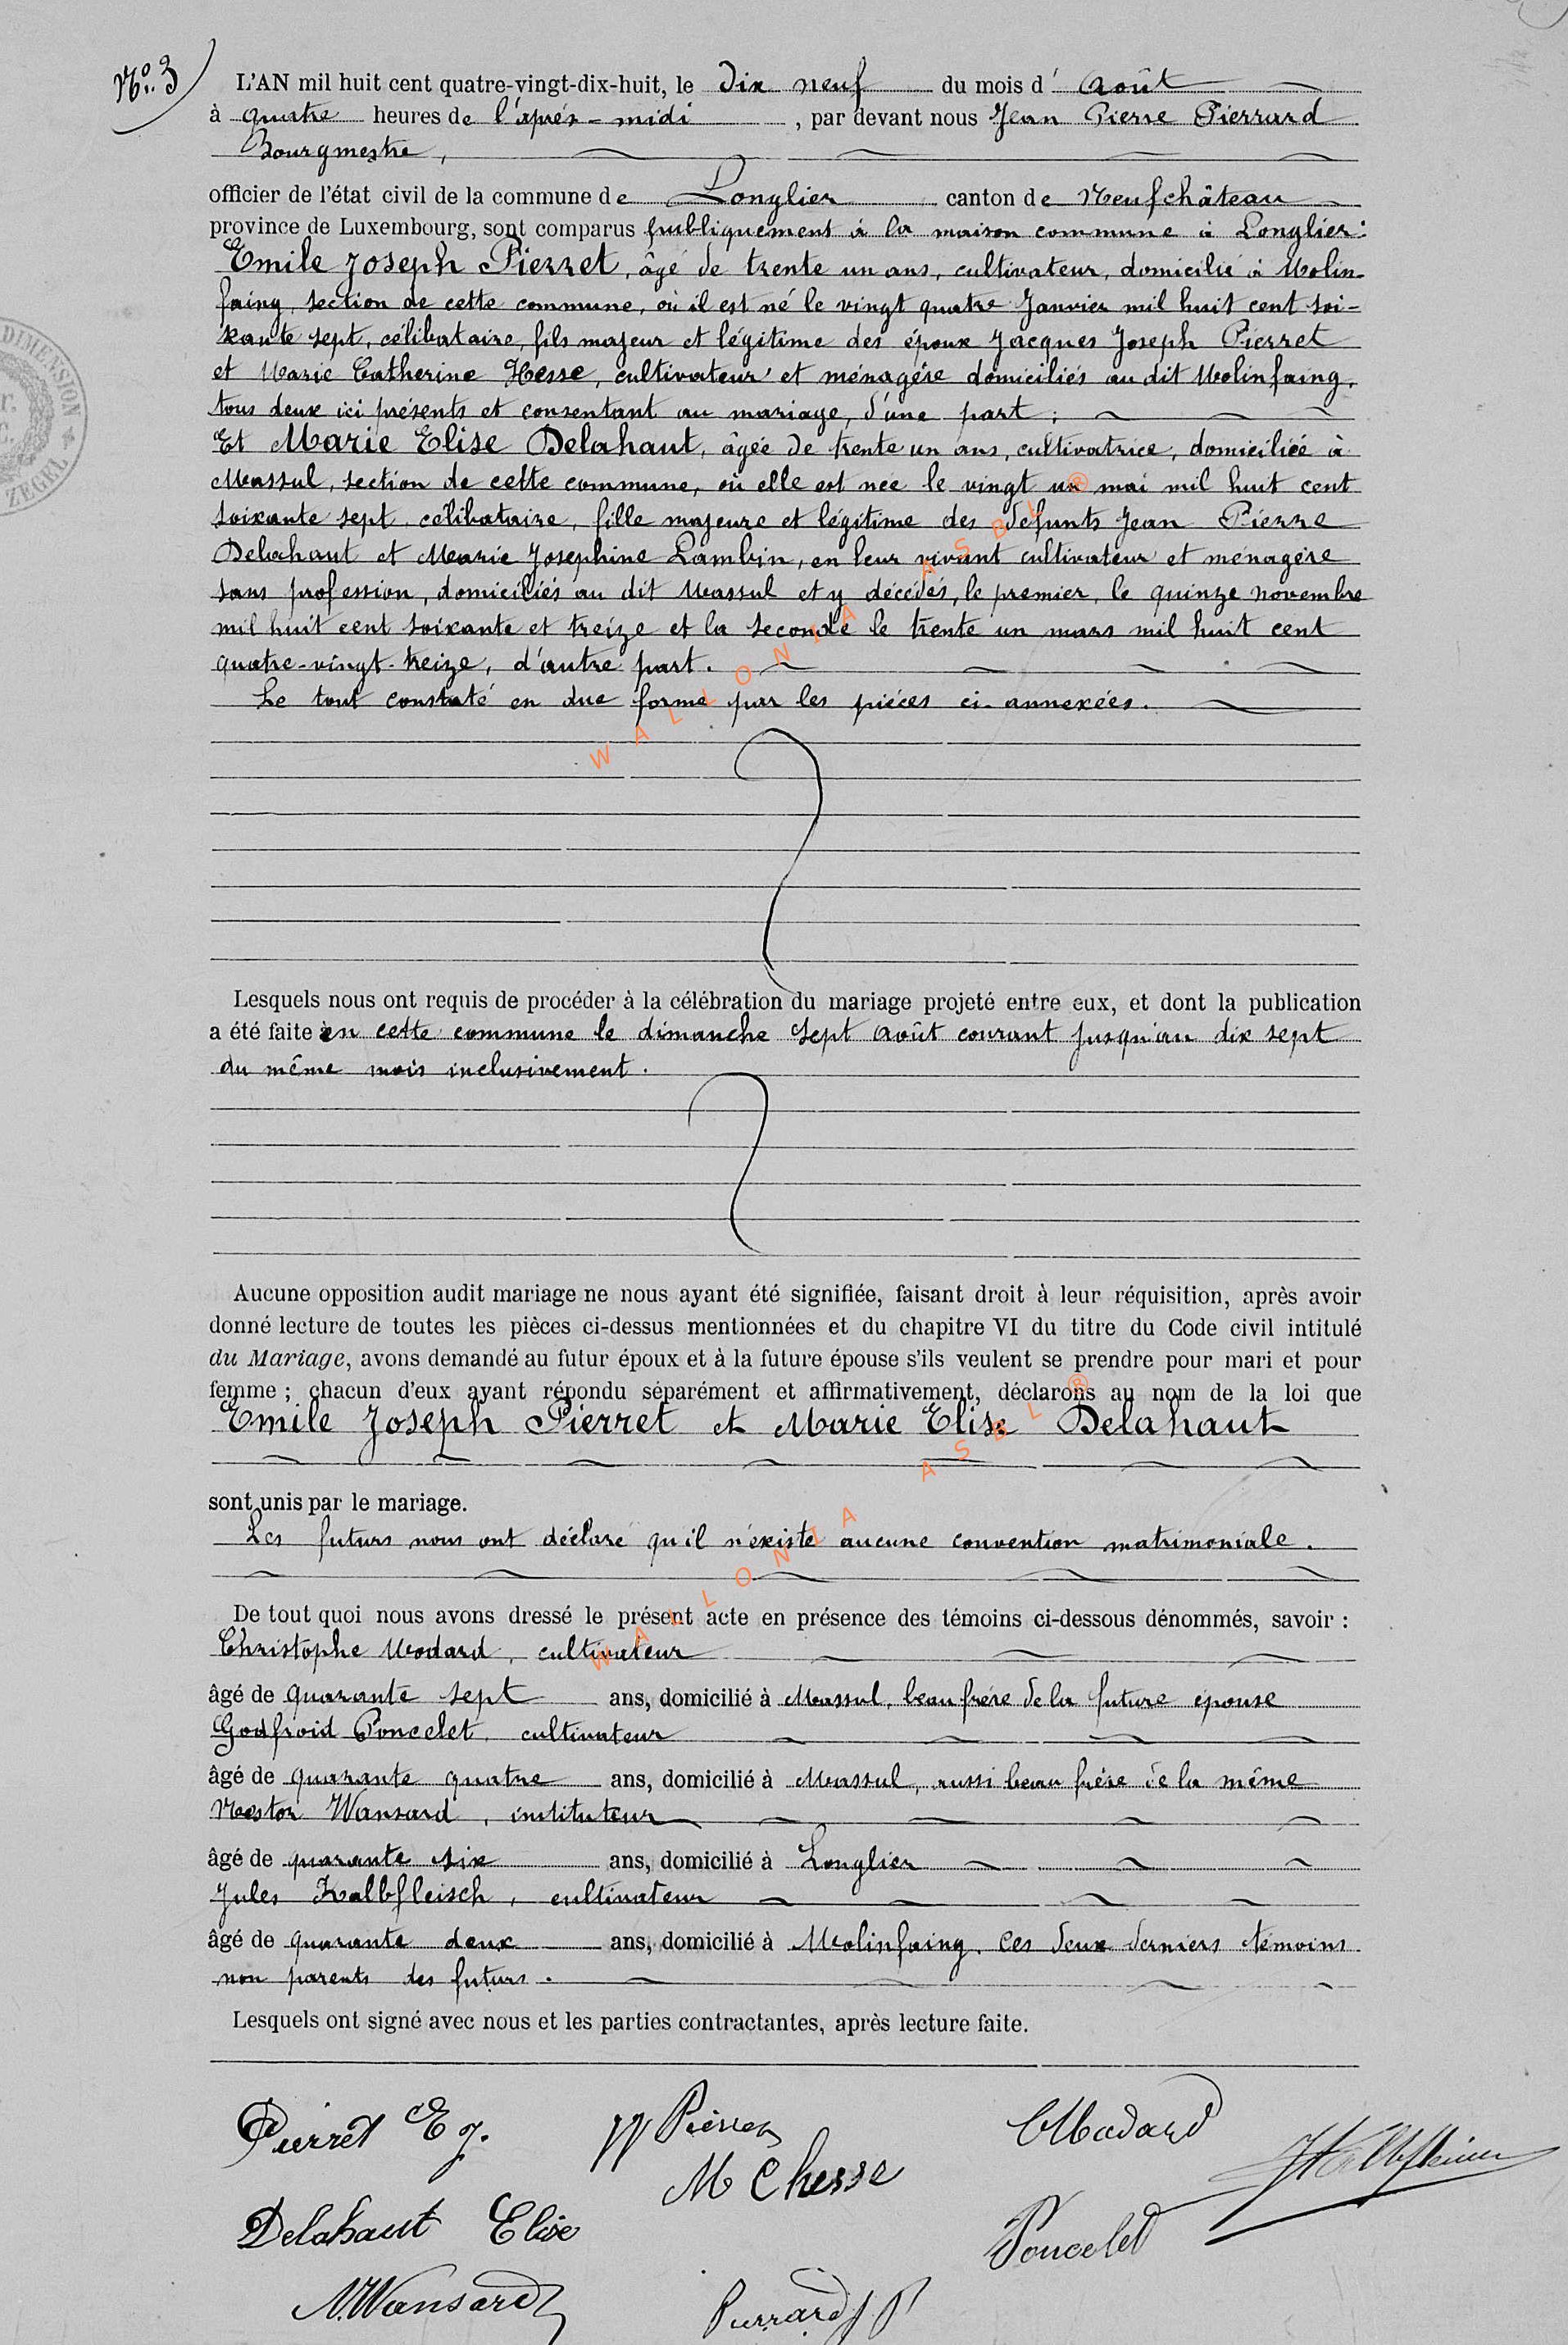 N° 3
L'AN mil huit cent quatre-vingt-dix-huit, le dix neuf du mois d' août
à quatre heures de l'après-midi, par devant nous Jean Pierre Pierrard
Bourgmestre,
officier de l'état civil de la commune de Longlier canton de Neufchâteau
province de Luxembourg, sont comparus publiquement à la maison commune à Longlier:
Emile Joseph Pierret, âgé de trente un ans, cultivateur, domicilié à Molin-
faing, section de cette commune, où il est né le vingt quatre Janvier mil huit cent soi-
xante sept, célibataire, fils majeur et légitime des époux Jacques Joseph Pierret
et Marie Catherine Hesse, cultivateur et ménagère domiciliés au dit Molinfaing,
tous deux ici présents et consentant au mariage, d'une part;
Et Marie Elise Delahaut, âgée de trente un ans, cultivatrice, domiciliée à
Massul, section de cette commune, où elle est née le vingt un mai mil huit cent
soixante sept, célibataire, fille majeure et légitime des défunts Jean Pierre
Delahaut et Marie Josephine Lambin, en leur vivant cultivateur et ménagère
sans profession, domiciliés au dit Massul et y décédés, le premier, le quinze novembre
mil huit cent soixante et treize et la seconde le trente un mars mil huit cent
quatre-vingt-treize, d'autre part.
Le tout constaté en due forme par les pièces ci-annexées.
Lesquels nous ont requis de procéder à la célébration du mariage projeté entre eux, et dont la publication
a été faite en cette commune le dimanche sept août courant jusqu'au dix sept
du même mois inclusivement.
Aucune opposition audit mariage ne nous ayant été signifiée, faisant droit à leur réquisition, après avoir
donné lecture de toutes les pièces ci-dessus mentionnées et du chapitre VI du titre du Code civil intitulé
du Mariage, avons demandé au futur époux et à la future épouse s'ils veulent se prendre pour mari et pour
femme ; chacun d'eux ayant répondu séparément et affirmativement, déclarons au nom de la loi que
Emile Joseph Pierret et Marie Elise Delahaut
sont unis par le mariage.
Les futurs nous ont déclaré qu'il n'existe aucune convention matrimoniale.
De tout quoi nous avons dressé le présent acte en présence des témoins ci-dessous dénommés, savoir :
Christophe Modard, cultivateur
âgé de quarante sept ans, domicilié à Massul, beau frère de la future épouse
Godfroid Poncelet, cultivateur
âgé de quarante quatre ans, domicilié à Massul, aussi beau frère de la même
Nestor Wansard, instituteur
âgé de quarante six ans, domicilié à Longlier
Jules Kalbfleisch, cultivateur
âgé de quarante deux ans, domicilié à Molinfaing. Ces deux derniers témoins
non parents des futurs.
Lesquels ont signé avec nous et les parties contractantes, après lecture faite.
Pierret E J. JJ Pierret CModard
M C hesse
Delahaut Elise Poncelet
N.Wansard Pierrard J.P
DIMENSION
ZEGEL
WALLONIA ASBL ®
WALLONIA ASBL ®